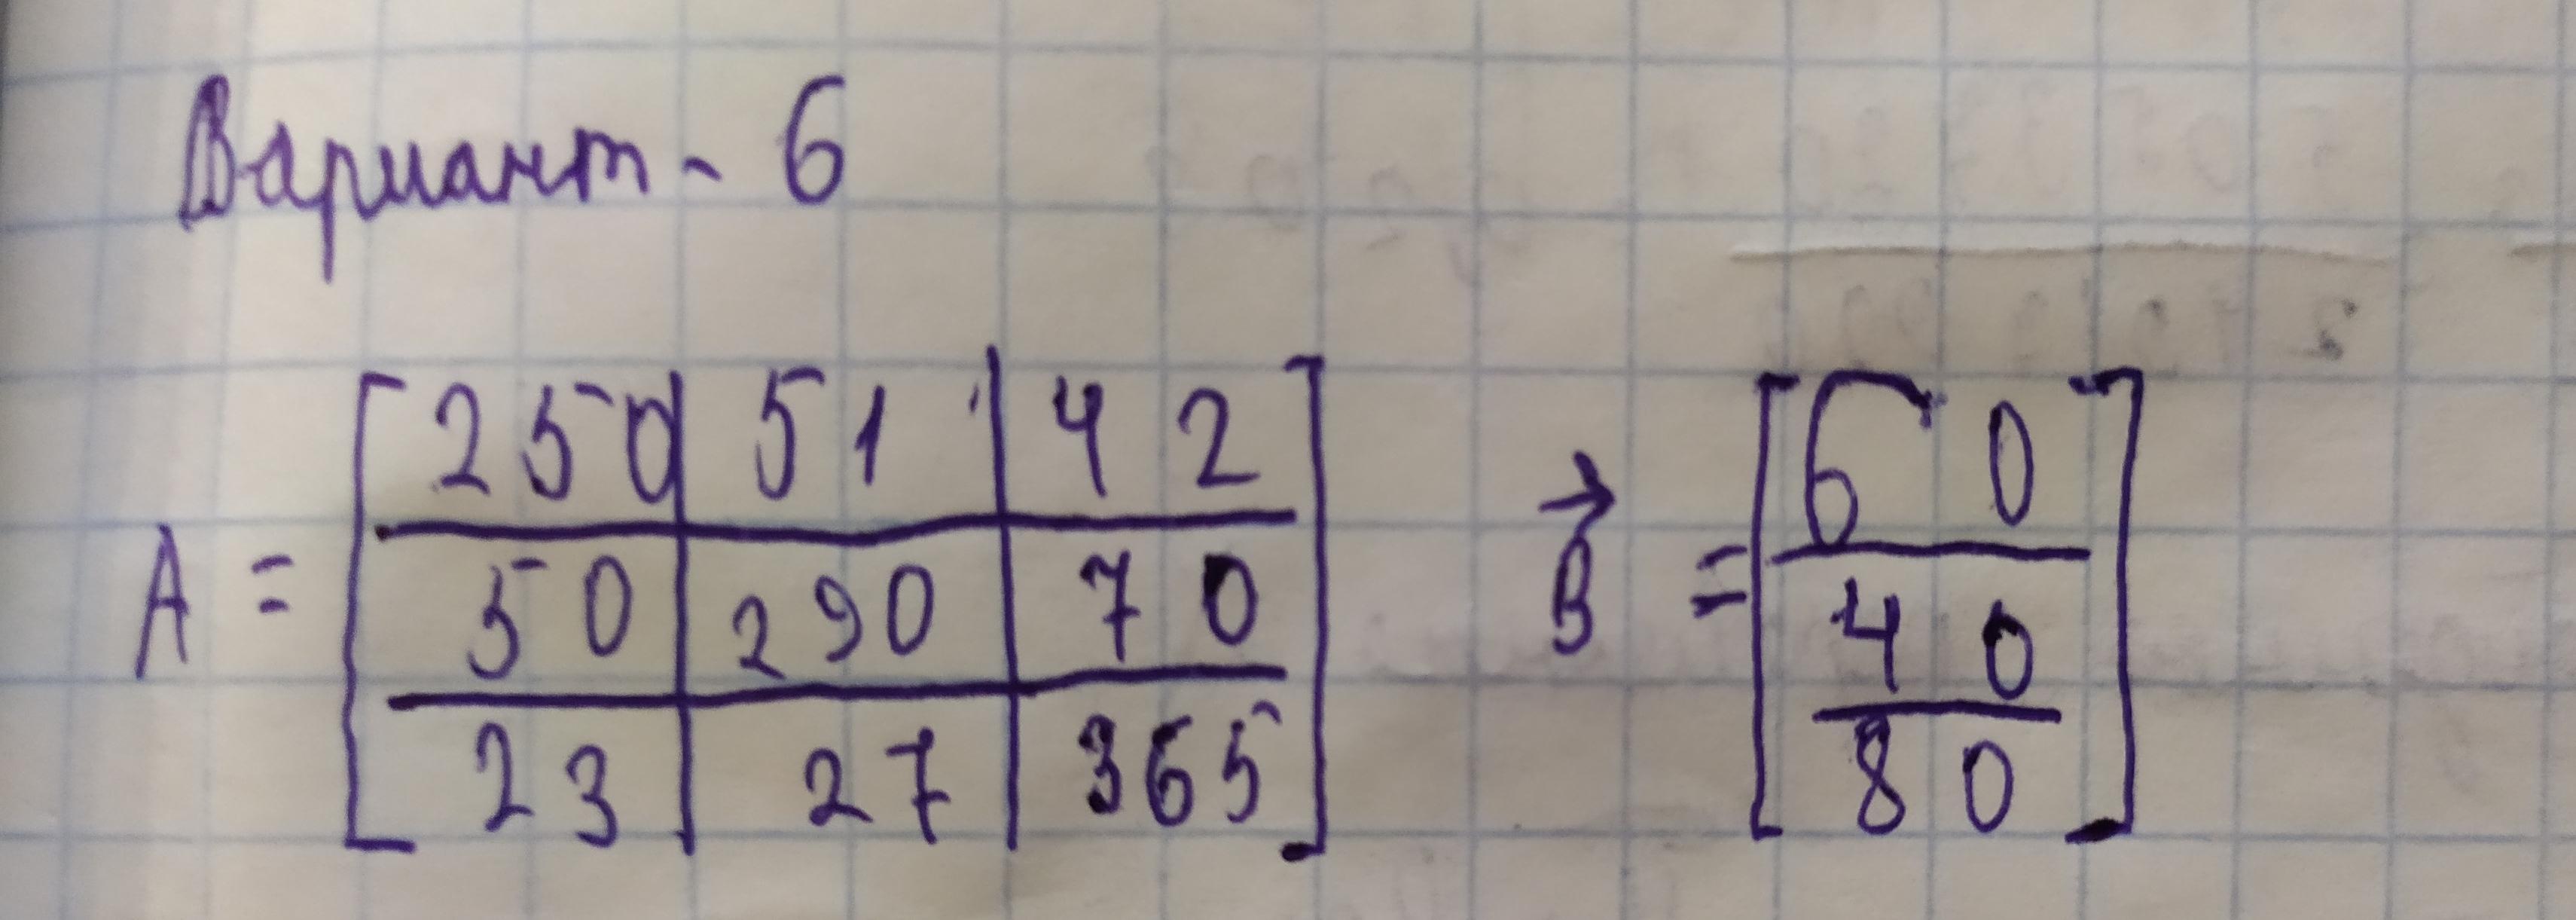 Вариант - 6
A = [250 | 51 | 42]
[50 | 290 | 70]
[23 | 27 | 365]
B⃗ = [60]
[40]
[80]